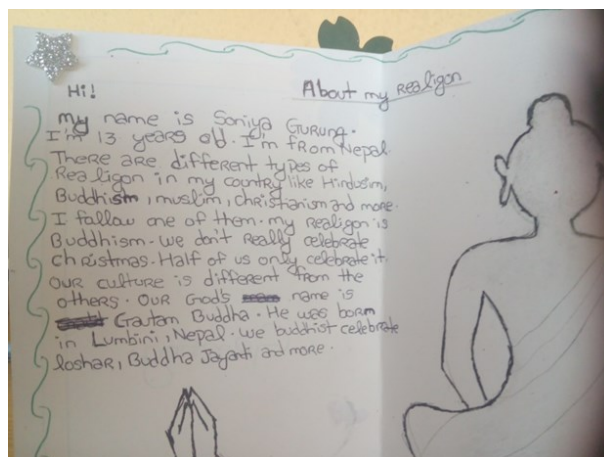 About my Realigon
Hi!
my name is Soniya Gurung.
I'm 13 years old. I'm from Nepal.
There are different types of
Realigon in my country like Hinduism,
Buddhism, muslim, christianism and more.
I fallow one of them. my Realigon is
Buddhism. we don't Really celebrate
christmas. Half of us only celebrate it.
our culture is different from the
others. our God's name is
Gautam Buddha. He was born
in Lumbini, Nepal. we buddhist celebrate
loshar, Buddha Jayanti and more.